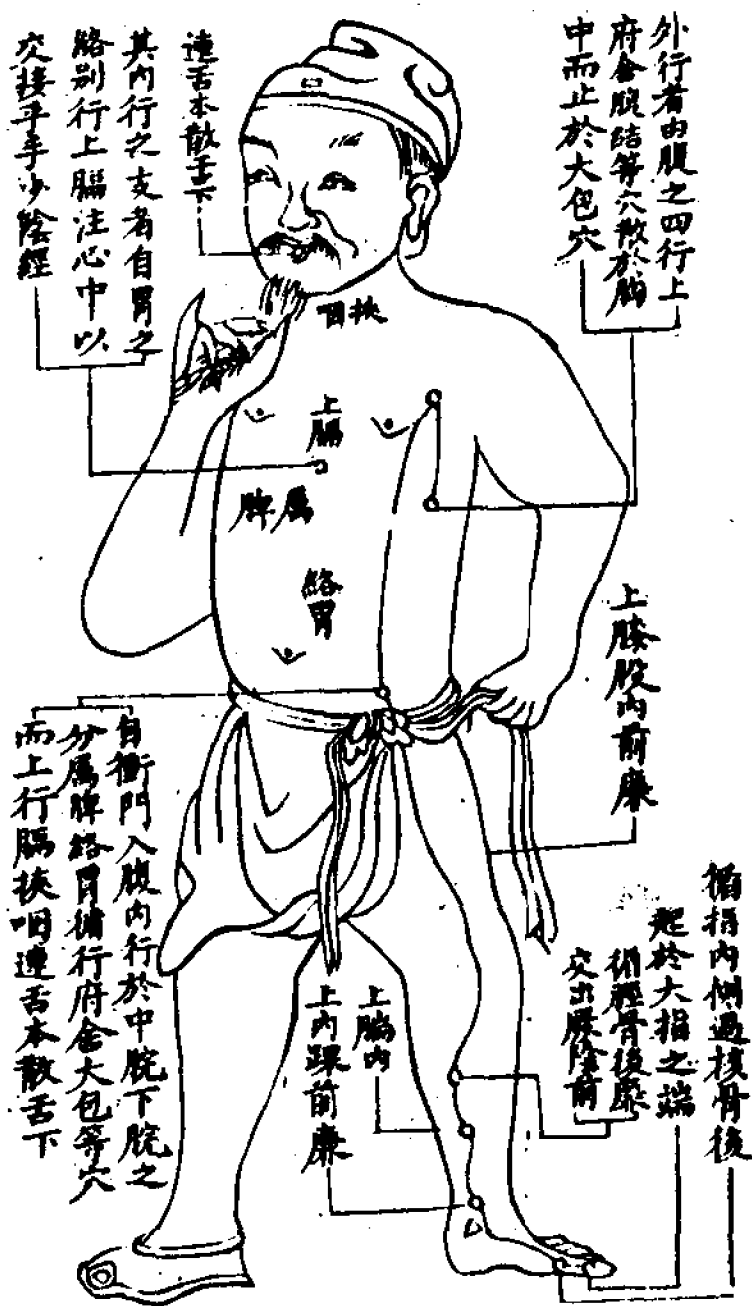 外行者由腹之四行上
府舍腹結等穴散於胸
中而止於大包穴
連舌本散舌下
其內行之支者自胃之
絡別行上膈注心中以
交接乎手少陰經
挾咽
上膈
屬脾
絡胃
上膝股內前廉
自衝門入腹內行於中脘下脘之
分屬脾絡胃循行府舍大包等穴
而上行膈挾咽連舌本散舌下
循指內側過核骨後
起於大指之端
循脛骨後廉
交出厥陰前
上腨內
上內踝前廉